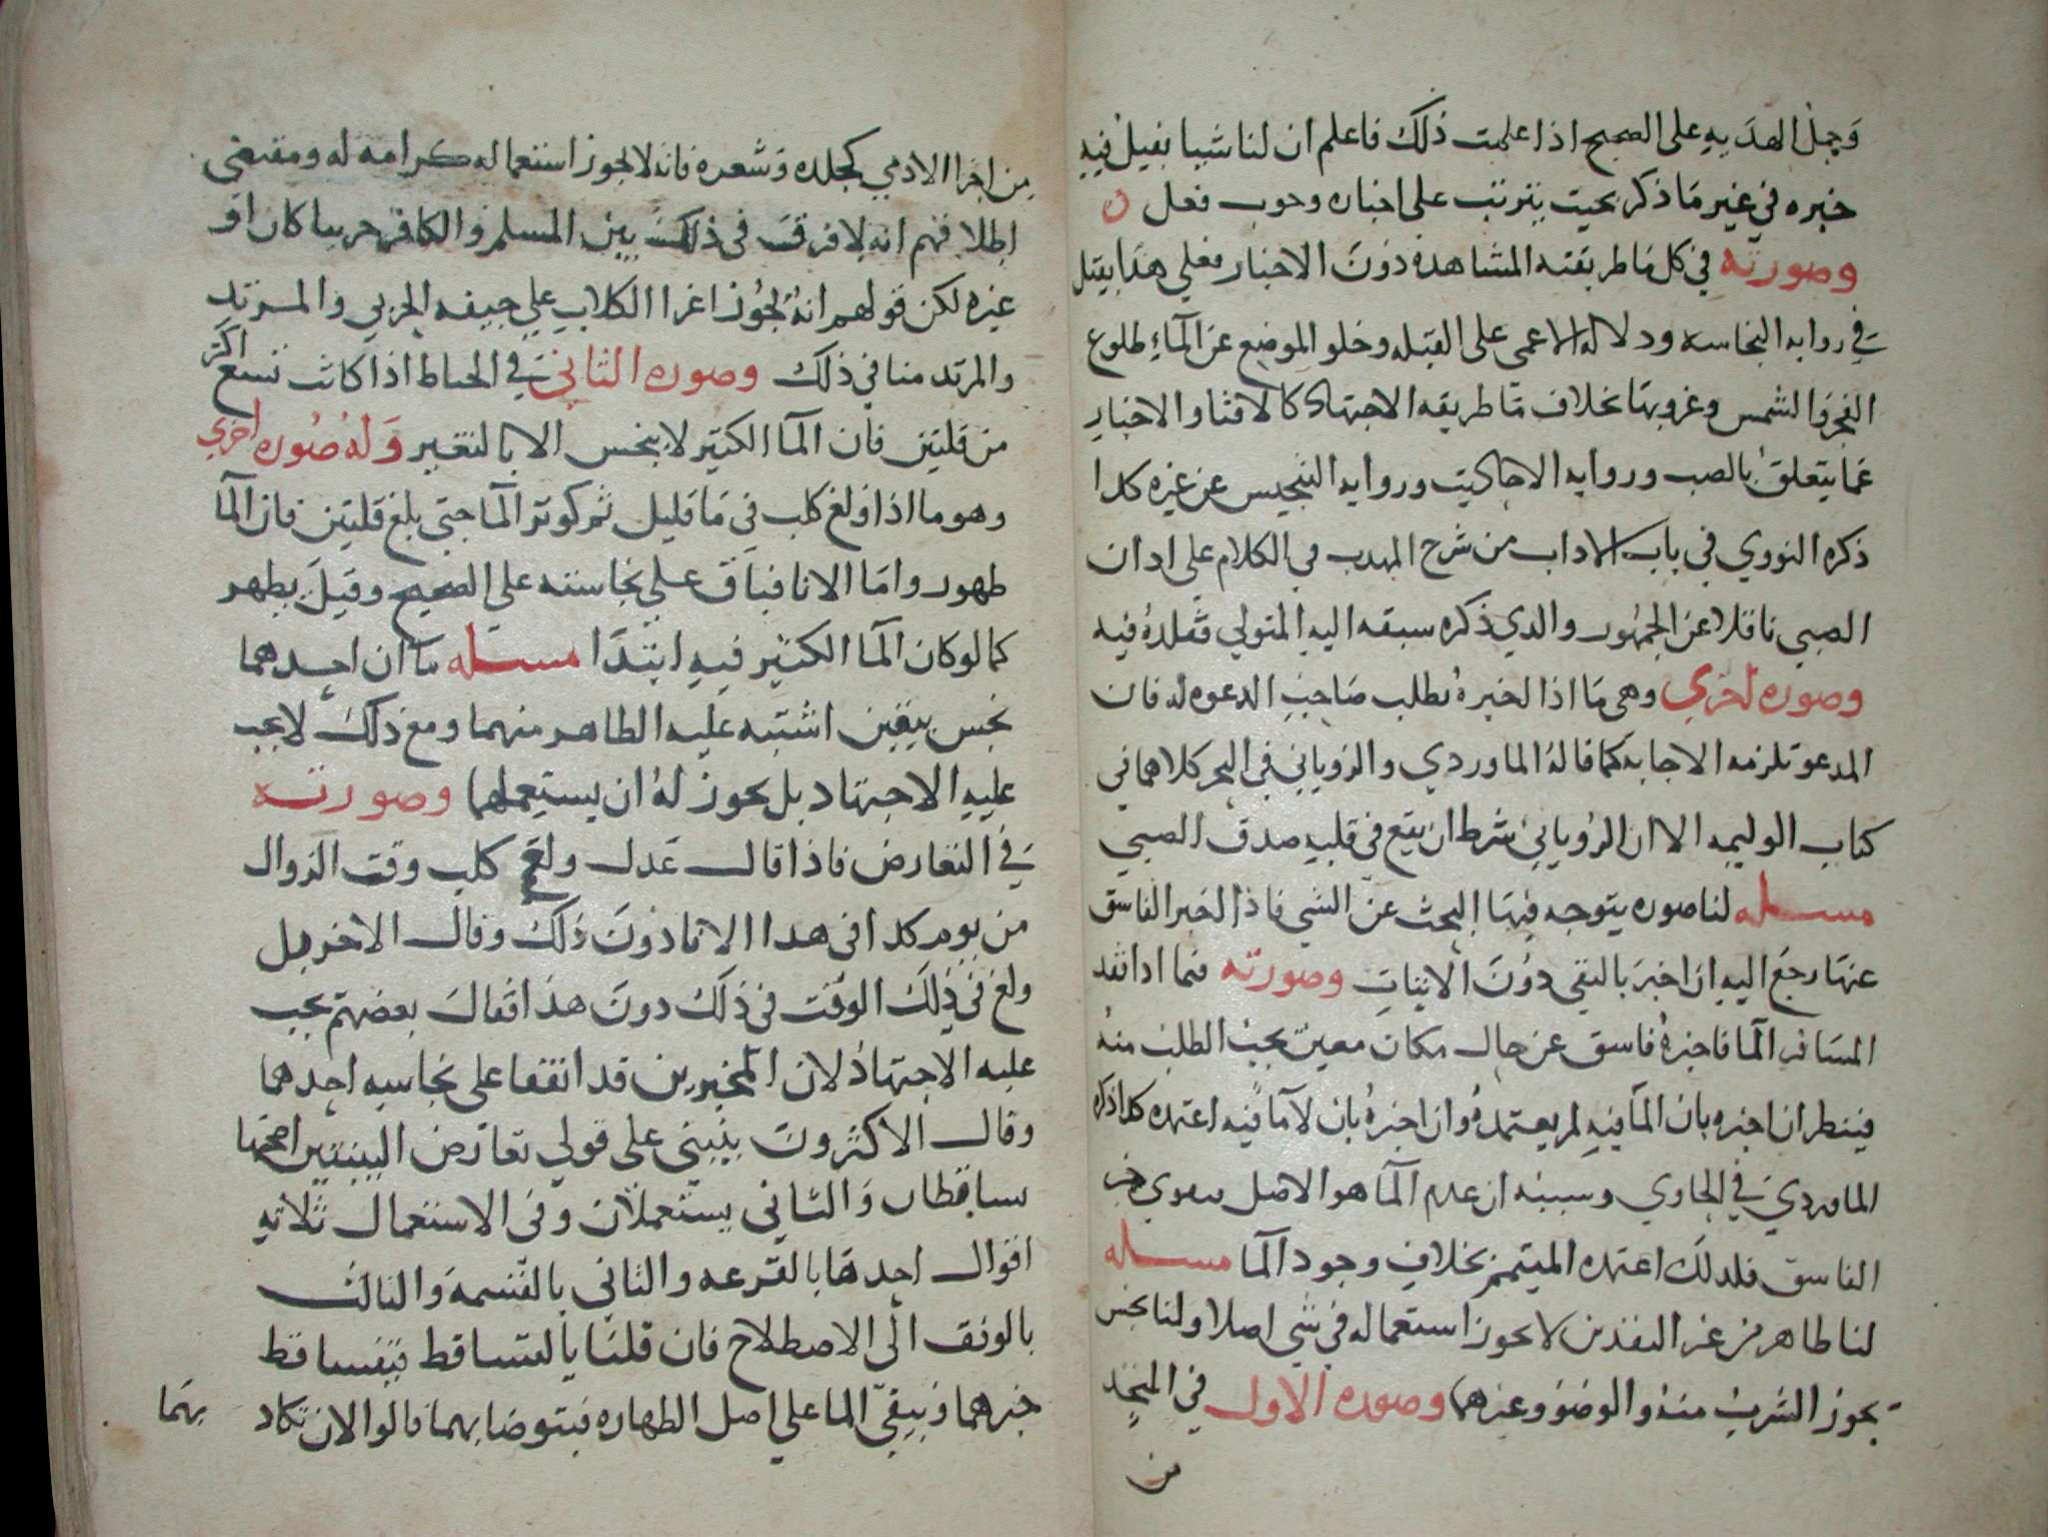 وحمل الهديه على الصحيح اذا علمت ذلك فاعلم ان لنا شيا يقبل فيه
خبره في غير ما ذكر بحيث يترتب على اخباره وجوب فعل ن
وصورته في كل ما طريقته المشاهدة دون الاخبار فعلى هذا يقبل
في روايه النجاسه ودلاله الاعمى على القبله وخلو الموضع عن الماء وطلوع
الفجر والشمس وغروبها بخلاف ما طريقه الاجتهاد كالافتا والاخبار
عما يتعلق بالصب وروايه الاحاديث وروايه التنجيس عن غيره كدا
ذكره النووي في باب الاداب من شرح المهدب في الكلام على ادان
الصبي ناقلا عن الجمهور والدي ذكره سبقه اليه المتولي فقلده فيه
وصوره اخري وهي ما اذا اخبره بطلب صاحب الدعوه له فان
المدعو تلزمه الاجابه كما قاله الماوردي والروياني في البحر كلاهما في
كتاب الوليمه الا ان الروياني شرط ان يقع في قلبه صدق الصبي
مسله لنا صوره يتوجه فيها البحث عن الشي فاذا اخبر الفاسق
عنها رجع اليه ان اخبر بالنفي دون الاثبات وصورته فيما ادا فقد
المسافر الما فاخبره فاسق عن حال مكان معين يجب الطلب منه
فينظر ان اخبره بان الما فيه لم يعتمده وان اخبره بان لا ما فيه اعتمده كدا ذكره
الماوردي في الحاوي وسببه ان عدم الما هو الاصل خبر
الفاسق فلدلك اعتمده المتيمم بخلاف وجود الما مسله
لنا طاهر من غير النقدين لا يجوز استعماله في شي اصلا ولنا نجس
يجوز الشرب منه والوضو وغيرهما وصوره الاول في المتخد
من
من اجزا الادمي كجلده وشعره فانه لا يجوز استعماله كرامه له ومقتضى
اطلاقهم انه لا فرق في ذلك بين المسلم والكافر حربيا كان او
غيره لكن قولهم انه يجوز اغرا الكلاب علي جيفه الحربي والمرتد
والمرتد منا في ذلك وصوره الثاني في اذا كانت تسع اكثر
من قلتين فان الما الكثير لا ينجس الا بالتغير وله صوره اخري
وهو ما اذا ولغ كلب في ما قليل ثم كوثر الما حتي بلغ قلتين فان الما
طهور واما الانا فباق على نجاسته علي الصحيح وقيل يطهر
كما لو كان الما الكثير فيه ابتدا مسله ما ان احدهما
نجس بيقين اشتبه عليه الطاهر منهما ومع ذلك لا يجب
عليه الاجتهاد بل يجوز له ان يستعملهما وصورته
في التعارض فاذا قال عدل ولغ كلب وقت الزوال
من يوم كدا في هدا الانا دون ذلك وقال الاخر بل
ولغ في ذلك الوقت في ذلك دون هذا فقال بعضهم يجب
عليه الاجتهاد لان المخبرين قد اتفقا على نجاسه احدهما
وقال الاكثرون ينبني على قولي تعارض البينتين اصحهما
يتساقطان والثاني يستعملان وفي الاستعمال ثلاثه
اقوال احدها بالقرعه والثاني بالقسمه والثالث
بالوقف الى الاصطلاح فان قلنا بالتساقط فيتساقط
خبرهما ويبقى الما علي اصل الطهاره فيتوضا بهما قالوا لان تكاد
بهما